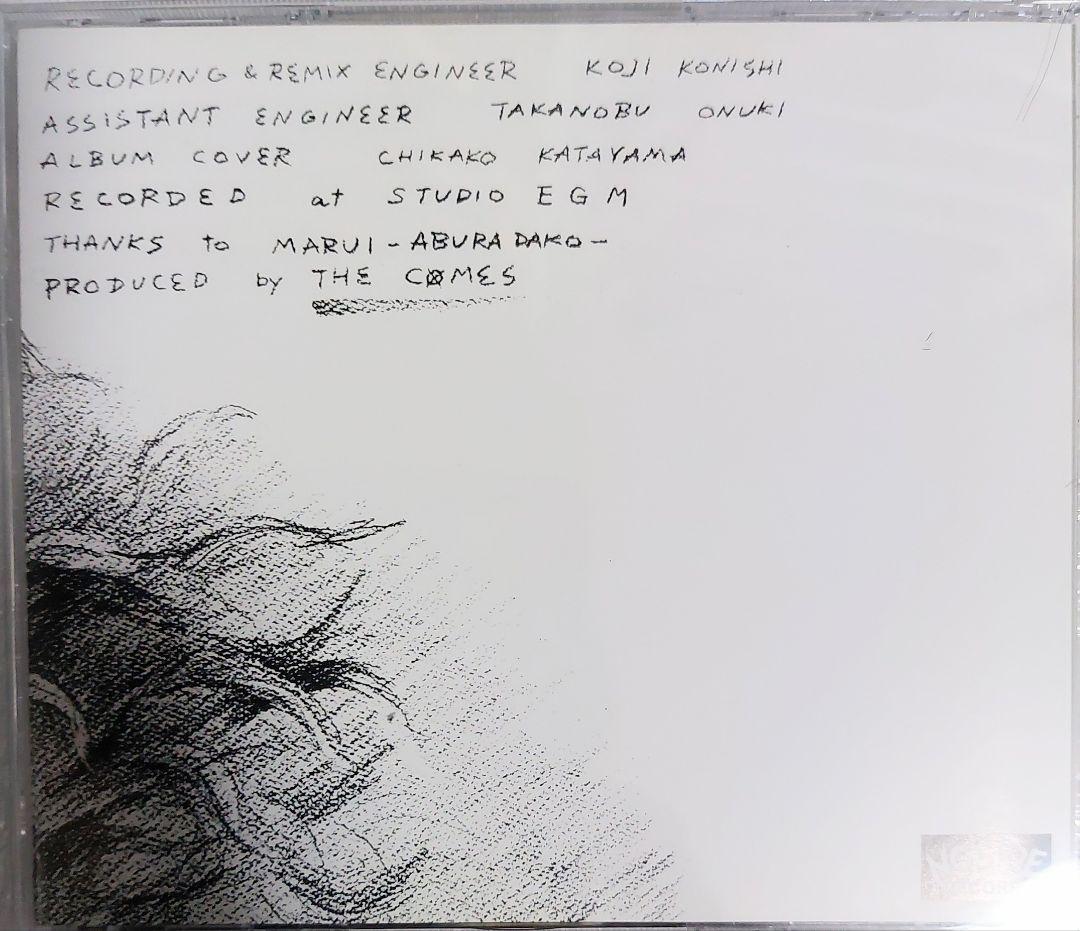 RECORDING & REMIX ENGINEER KOJI KONISHI
ASSISTANT ENGINEER TAKANOBU ONUKI
ALBUM COVER CHIKAKO KATAYAMA
RECORDED at STUDIO EGM
THANKS to MARUI - ABURA DAKO -
PRODUCED by THE CØMES